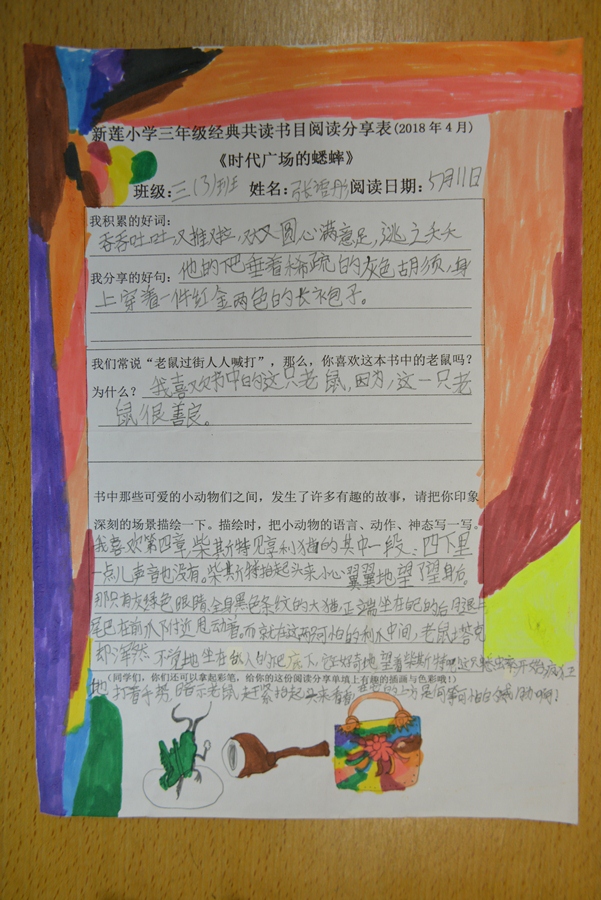 新莲小学三年级经典共读书目阅读分享表(2018年4月)
《时代广场的蟋蟀》
班级:三(3)班 姓名:张 阅读日期:5月11日
我积累的好词:
吞吞吐吐,又推又拉,又圆心满意足,逃之夭夭
我分享的好句:他的下巴垂着稀疏的灰色胡须,身
上穿着一件红金两色的长衣包子。
我们常说“老鼠过街人人喊打”,那么,你喜欢这本书中的老鼠吗?
为什么?我喜欢书中的这只老鼠,因为,这一只老
鼠很善良。
书中那些可爱的小动物们之间,发生了许多有趣的故事,请把你印象
深刻的场景描绘一下。描绘时,把小动物的语言、动作、神态写一写。
我喜欢第四章柴斯特见亨利猫的其中一段:四下里
一点儿声音也没有。柴斯特抬起头来小心翼翼地望了望身后。
那只有灰绿色眼睛全身黑色条纹的大猫正端坐在自己的后腿上
尾巴在前爪附近甩动着。而就在这两可怕的利爪中间,老鼠塔克
却浑然不觉地坐在敌人的下,还好奇地望着柴斯特呢这只蟋蟀开始疯狂
(同学们,你们还可以拿起彩笔,给你的这份阅读分享单填上有趣的插画与色彩哦!)
地打着手势,暗示老鼠赶紧抬起头来看看的上方是何等可怕的啊!